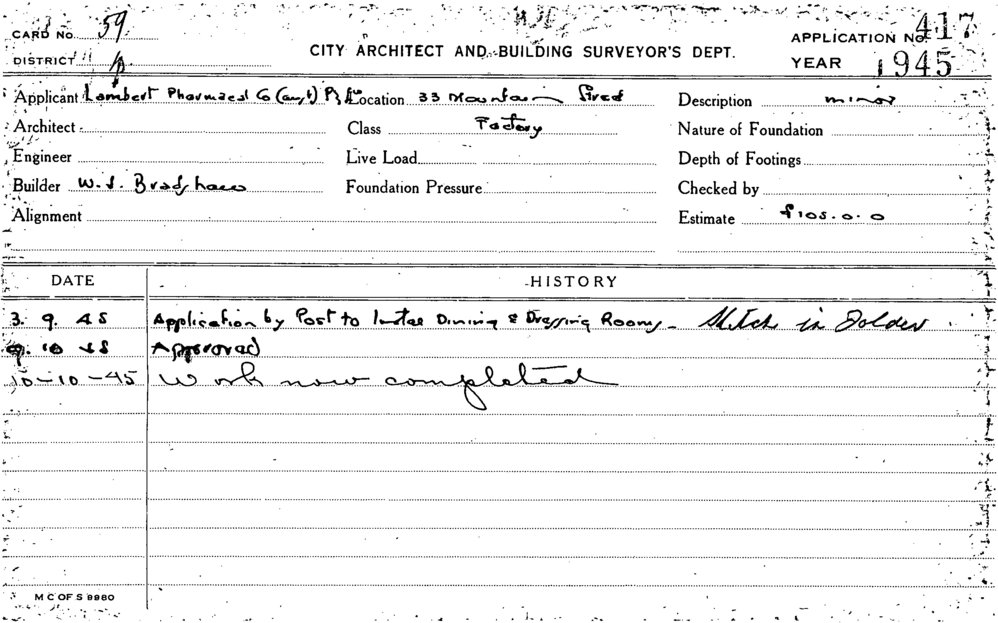 CARD No. 59
DISTRICT
CITY ARCHITECT AND BUILDING SURVEYOR'S DEPT.
APPLICATION No. 417
YEAR 1945
Applicant Lambert Pharmacal Co (Aust) P. Ltd Location 33 Mountain Street Description minor
Architect Class Factory Nature of Foundation
Engineer Live Load Depth of Footings
Builder W. J. Bradshaw Foundation Pressure Checked by
Alignment Estimate £105.0.0
DATE HISTORY
3. 9. 45 Application by Post to Instal Dining & Dressing Rooms - Sketch in Folder
9. 10 45 Approved
10-10-45 Work now completed
M C OF S 9980